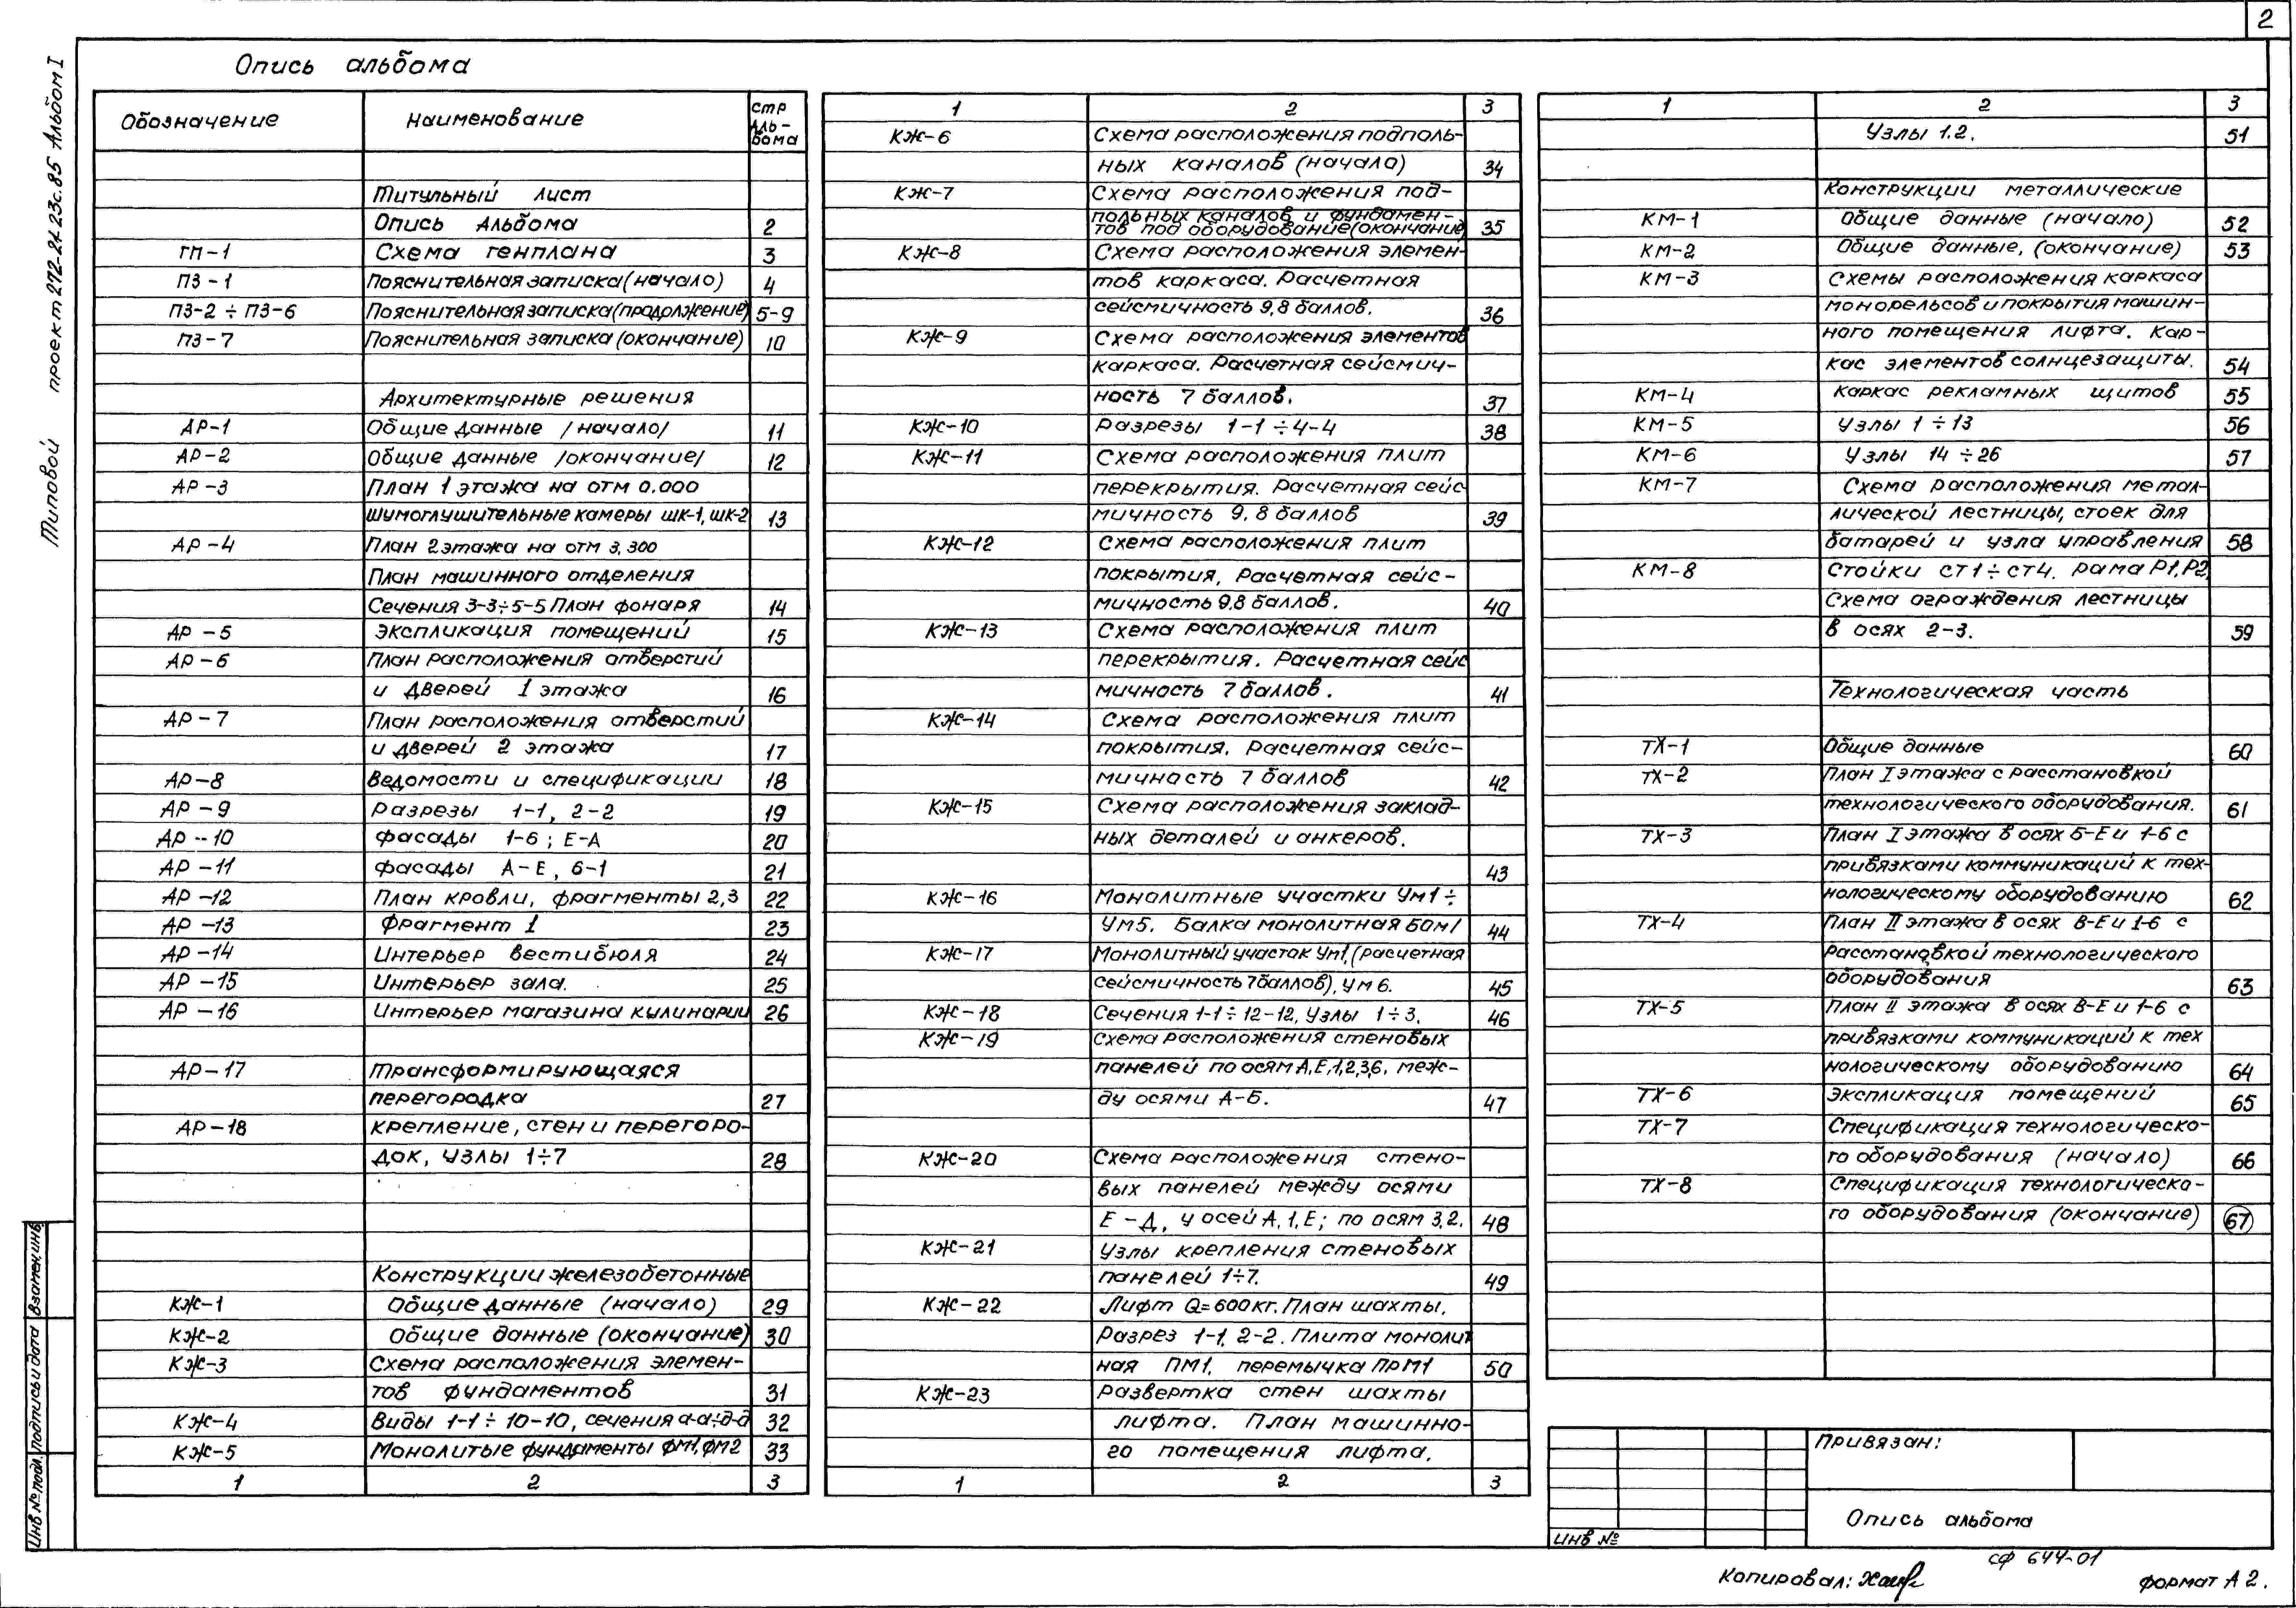 2
Типовой проект 272-24 23с.85 Альбом I
Опись альбома
Обозначение Наименование стр Аль-бома
Титульный лист
Опись Альбома 2
ГП-1 Схема генплана 3
ПЗ-1 Пояснительная записка (начало) 4
ПЗ-2 ÷ ПЗ-6 Пояснительная записка (продолжение) 5-9
ПЗ-7 Пояснительная записка (окончание) 10
Архитектурные решения
АР-1 Общие данные /начало/ 11
АР-2 Общие данные /окончание/ 12
АР-3 План 1 этажа на отм 0.000
шумоглушительные камеры шк-1, шк-2 13
АР-4 План 2 этажа на отм 3,300
План машинного отделения
Сечения 3-3÷5-5 План фонаря 14
АР-5 Экспликация помещений 15
АР-6 План расположения отверстий
и дверей 1 этажа 16
АР-7 План расположения отверстий
и дверей 2 этажа 17
АР-8 Ведомости и спецификации 18
АР-9 Разрезы 1-1, 2-2 19
АР-10 Фасады 1-6; Е-А 20
АР-11 Фасады А-Е, 6-1 21
АР-12 План кровли, фрагменты 2,3 22
АР-13 Фрагмент 1 23
АР-14 Интерьер вестибюля 24
АР-15 Интерьер зала. 25
АР-16 Интерьер магазина кулинарии 26
АР-17 Трансформирующаяся
перегородка 27
АР-18 Крепление, стен и перегоро-
док, узлы 1÷7 28
Конструкции железобетонные
КЖ-1 Общие данные (начало) 29
КЖ-2 Общие данные (окончание) 30
КЖ-3 Схема расположения элемен-
тов фундаментов 31
КЖ-4 Виды 1-1 ÷ 10-10, сечения а-а÷д-д 32
КЖ-5 Монолитые фундаменты ФМ1, ФМ2 33
1 2 3
1 2 3
КЖ-6 Схема расположения подполь-
ных каналов (начало) 34
КЖ-7 Схема расположения под-
польных каналов и фундамен-
тов под оборудование (окончание) 35
КЖ-8 Схема расположения элемен-
тов каркаса. Расчетная
сейсмичность 9,8 баллов. 36
КЖ-9 Схема расположения элементов
каркаса. Расчетная сейсмич-
ность 7 баллов. 37
КЖ-10 Разрезы 1-1 ÷ 4-4 38
КЖ-11 Схема расположения плит
перекрытия. Расчетная сейс
мичность 9, 8 баллов 39
КЖ-12 Схема расположения плит
покрытия, Расчетная сейс-
мичность 9.8 баллов. 40
КЖ-13 Схема расположения плит
перекрытия. Расчетная сейс
мичность 7 баллов. 41
КЖ-14 Схема расположения плит
покрытия. Расчетная сейс-
мичность 7 баллов 42
КЖ-15 Схема расположения заклад-
ных деталей и анкеров.
43
КЖ-16 Монолитные участки Ум1 ÷
Ум5. Балка монолитная Бом1 44
КЖ-17 Монолитный участок Ум1, (расчетная
сейсмичность 7 баллов), Ум 6. 45
КЖ-18 Сечения 1-1 ÷ 12-12, Узлы 1÷3. 46
КЖ-19 Схема расположения стеновых
панелей по осям А,Е,1,2,3,6, меж-
ду осями А-Б. 47
КЖ-20 Схема расположения стено-
вых панелей между осями
Е-Д, у осей А, 1, Е; по осям 3,2. 48
КЖ-21 Узлы крепления стеновых
панелей 1÷7. 49
КЖ-22 Лифт Q=600кг. План шахты.
Разрез 1-1, 2-2. Плита монолит
ная ПМ1, перемычка ПрМ1 50
КЖ-23 Развертка стен шахты
лифта. План машинно-
го помещения лифта.
1 2 3
1 2 3
Узлы 1.2. 51
Конструкции металлические
КМ-1 Общие данные (начало) 52
КМ-2 Общие данные, (окончание) 53
КМ-3 Схемы расположения каркаса
монорельсов и покрытия машин-
ного помещения лифта. Кар-
кас элементов солнцезащиты. 54
КМ-4 Каркас рекламных щитов 55
КМ-5 Узлы 1 ÷ 13 56
КМ-6 Узлы 14 ÷ 26 57
КМ-7 Схема расположения метал-
лической лестницы, стоек для
батарей и узла управления 58
КМ-8 Стойки СТ1÷СТ4. Рама Р1, Р2,
Схема ограждения лестницы
в осях 2-3. 59
Технологическая часть
ТХ-1 Общие данные 60
ТХ-2 План I этажа с расстановкой
технологического оборудования. 61
ТХ-3 План I этажа в осях Б-Е и 1-6 с
привязками коммуникаций к тех-
нологическому оборудованию 62
ТХ-4 План II этажа в осях В-Е и 1-6 с
Расстановкой технологического
оборудования 63
ТХ-5 План II этажа в осях В-Е и 1-6 с
привязками коммуникаций к тех
нологическому оборудованию 64
ТХ-6 Экспликация помещений 65
ТХ-7 Спецификация технологическо-
го оборудования (начало) 66
ТХ-8 Спецификация технологическо-
го оборудования (окончание) 67
Привязан:
Опись альбома
Инв №
Инв № подл. Подпись и дата Взамен.инв.
СФ 644-01
Копировал:
формат А 2.